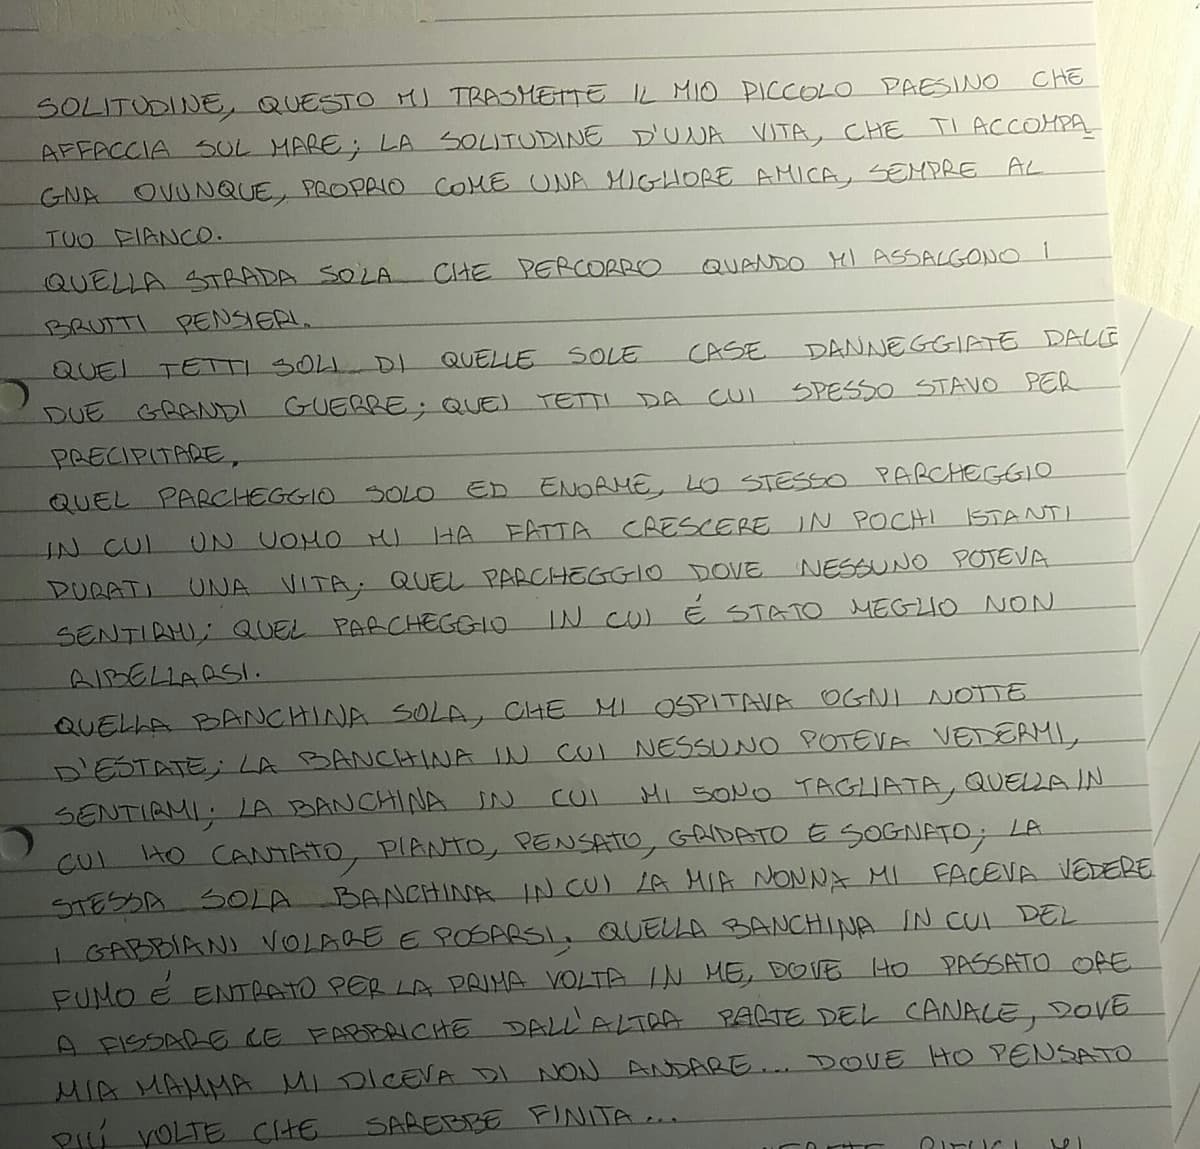 SOLITUDINE, QUESTO MI TRASMETTE IL MIO PICCOLO PAESINO CHE
AFFACCIA SUL MARE; LA SOLITUDINE D'UNA VITA, CHE TI ACCOMPA
GNA OVUNQUE, PROPRIO COME UNA MIGLIORE AMICA, SEMPRE AL
TUO FIANCO.
QUELLA STRADA SOLA CHE PERCORRO QUANDO MI ASSALGONO I
BRUTTI PENSIERI.
QUEI TETTI SOLI DI QUELLE SOLE CASE DANNEGGIATE DALLE
DUE GRANDI GUERRE; QUEI TETTI DA CUI SPESSO STAVO PER
PRECIPITARE.
QUEL PARCHEGGIO SOLO ED ENORME, LO STESSO PARCHEGGIO
IN CUI UN UOMO MI HA FATTA CRESCERE IN POCHI ISTANTI
DURATI UNA VITA; QUEL PARCHEGGIO DOVE NESSUNO POTEVA
SENTIRMI; QUEL PARCHEGGIO IN CUI É STATO MEGLIO NON
RIBELLARSI.
QUELLA BANCHINA SOLA, CHE MI OSPITAVA OGNI NOTTE
D'ESTATE; LA BANCHINA IN CUI NESSUNO POTEVA VEDERMI,
SENTIRMI; LA BANCHINA IN CUI MI SONO TAGLIATA, QUELLA IN
CUI HO CANTATO, PIANTO, PENSATO, GRIDATO E SOGNATO; LA
STESSA SOLA BANCHINA IN CUI LA MIA NONNA MI FACEVA VEDERE
I GABBIANI VOLARE E POSARSI. QUELLA BANCHINA IN CUI DEL
FUMO É ENTRATO PER LA PRIMA VOLTA IN ME, DOVE HO PASSATO ORE
A FISSARE LE FABBRICHE DALL'ALTRA PARTE DEL CANALE, DOVE
MIA MAMMA MI DICEVA DI NON ANDARE... DOVE HO PENSATO
PIÚ VOLTE CHE SAREBBE FINITA...